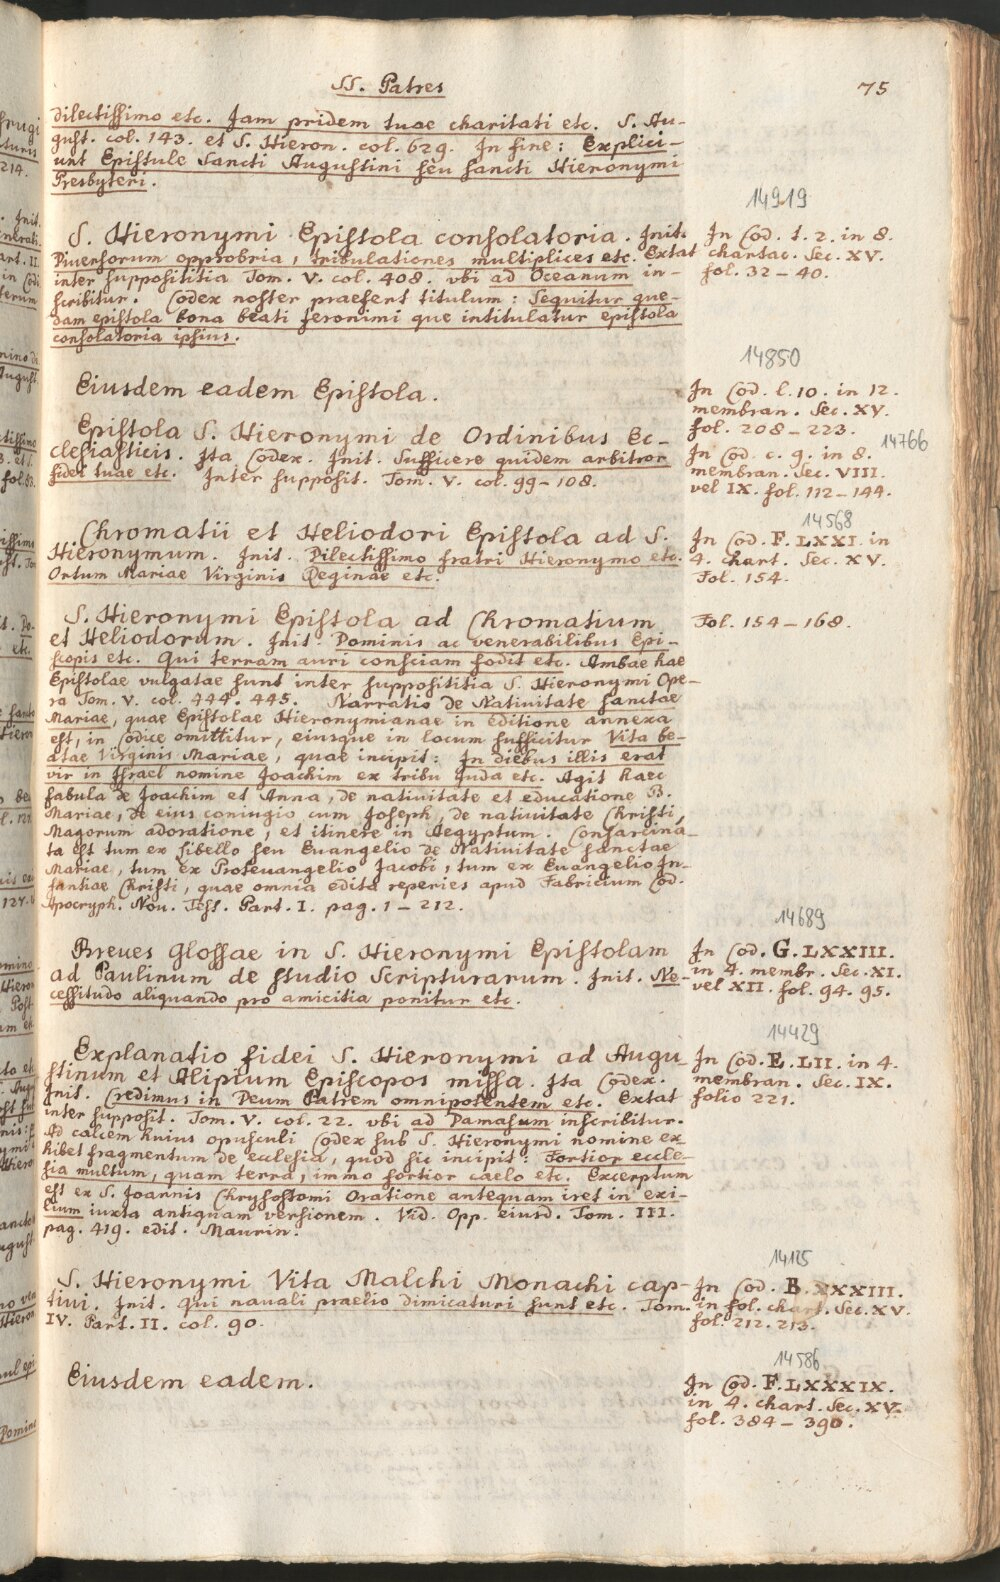 SS. Patres
75
dilectissimo etc. Jam pridem tuae charitati etc. S. Au-
gust. col. 143. et S. Hieron. col. 629. In fine: Explici-
unt Epistule Sancti Augustini seu sancti Hieronymi
Presbyteri.
14919
S. Hieronymi Epistola consolatoria. Init.
Diversorum opprobria, tribulationes multiplices etc. Extat
inter supposititia Tom. V. col. 408. vbi ad Oceanum in-
scribitur. Codex noster praefert titulum: Sequitur que-
dam epistola bona beati Jeronimi que intitulatur epistola
consolatoria ipsius.
In Cod. t. 2. in 8.
chartac. Sec. XV.
fol. 32 – 40.
14850
Eiusdem eadem Epistola.
In Cod. l. 10. in 12.
membran. Sec. XV.
fol. 208 – 223.
14766
Epistola S. Hieronymi de Ordinibus Ec-
clesiasticis. Ita Codex. Init. Sufficere quidem arbitror
fidei tuae etc. Inter supposit. Tom. V. col. 99 – 108.
In Cod. c. 9. in 8.
membran. Sec. VIII.
vel IX. fol. 112 – 144.
14568
Chromatii et Heliodori Epistola ad S.
Hieronymum. Init. Dilectissimo fratri Hieronymo etc.
Ortum Mariae Virginis Reginae etc.
In Cod. F. LXXI. in
4. chart. Sec. XV.
Fol. 154.
S. Hieronymi Epistola ad Chromatium
et Heliodorum. Init. Dominis ac venerabilibus Epi-
scopis etc. Qui terram auri consciam fodit etc. Ambae hae
Epistolae vulgatae sunt inter supposititia S. Hieronymi Ope-
ra Tom. V. col. 444. 445. Narratio de Nativitate sanctae
Mariae, quae Epistolae Hieronymianae in editione annexa
est, in Codice omittitur, eiusque in locum sufficitur Vita be-
atae Virginis Mariae, quae incipit: In diebus illis erat
vir in Israel nomine Joachim ex tribu Juda etc. Agit haec
fabula de Joachim et Anna, de nativitate et educatione B.
Mariae, de eius coniugio cum Joseph, de nativitate Christi,
Magorum adoratione, et itinere in Aegyptum. Consarcina-
ta est tum ex libello seu Euangelio de Nativitate sanctae
Mariae, tum ex Proteuangelio Jacobi, tum ex Euangelio In-
fantiae Christi, quae omnia edita reperies apud Fabricium Cod.
Apocryph. Nou. Test. Part. I. pag. 1 – 212.
Fol. 154 – 168.
14689
Breues Glossae in S. Hieronymi Epistolam
ad Paulinum de studio Scripturarum. Init. Ne-
cessitudo aliquando pro amicitia ponitur etc.
In Cod. G. LXXIII.
in 4. membr. Sec. XI.
vel XII. fol. 94. 95.
14429
Explanatio fidei S. Hieronymi ad Augu-
stinum et Alipium Episcopos missa. Ita Codex.
Init. Credimus in Deum Patrem omnipotentem etc. Extat
inter supposit. Tom. V. col. 22. vbi ad Damasum inscribitur.
Ad calcem huius opusculi Codex sub S. Hieronymi nomine ex
hibet fragmentum de ecclesia, quod sic incipit: Fortior eccle-
sia multum, quam terra, immo fortior caelo etc. Excerptum
est ex S. Joannis Chrysostomi Oratione antequam iret in exi-
lium iuxta antiquam versionem. Vid. Opp. eiusd. Tom. III.
pag. 419. edit. Maurin.
In Cod. E. LII. in 4.
membran. Sec. IX.
folio 221.
14125
S. Hieronymi Vita Malchi Monachi cap-
tivi. Init. Qui nauali praelio dimicaturi sunt etc. Tom.
IV. Part. II. col. 90.
In Cod. B. XXXIII.
in fol. chart. Sec. XV.
fol. 212. 213.
14586
Eiusdem eadem.
In Cod. F. LXXXIX.
in 4. chart. Sec. XV.
fol. 384 – 390.